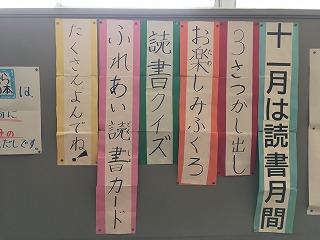 十一月は読書月間
3さつかし出し
お楽しみふくろ
読書クイズ
ふれあい読書カード
たくさんよんでね!
は、